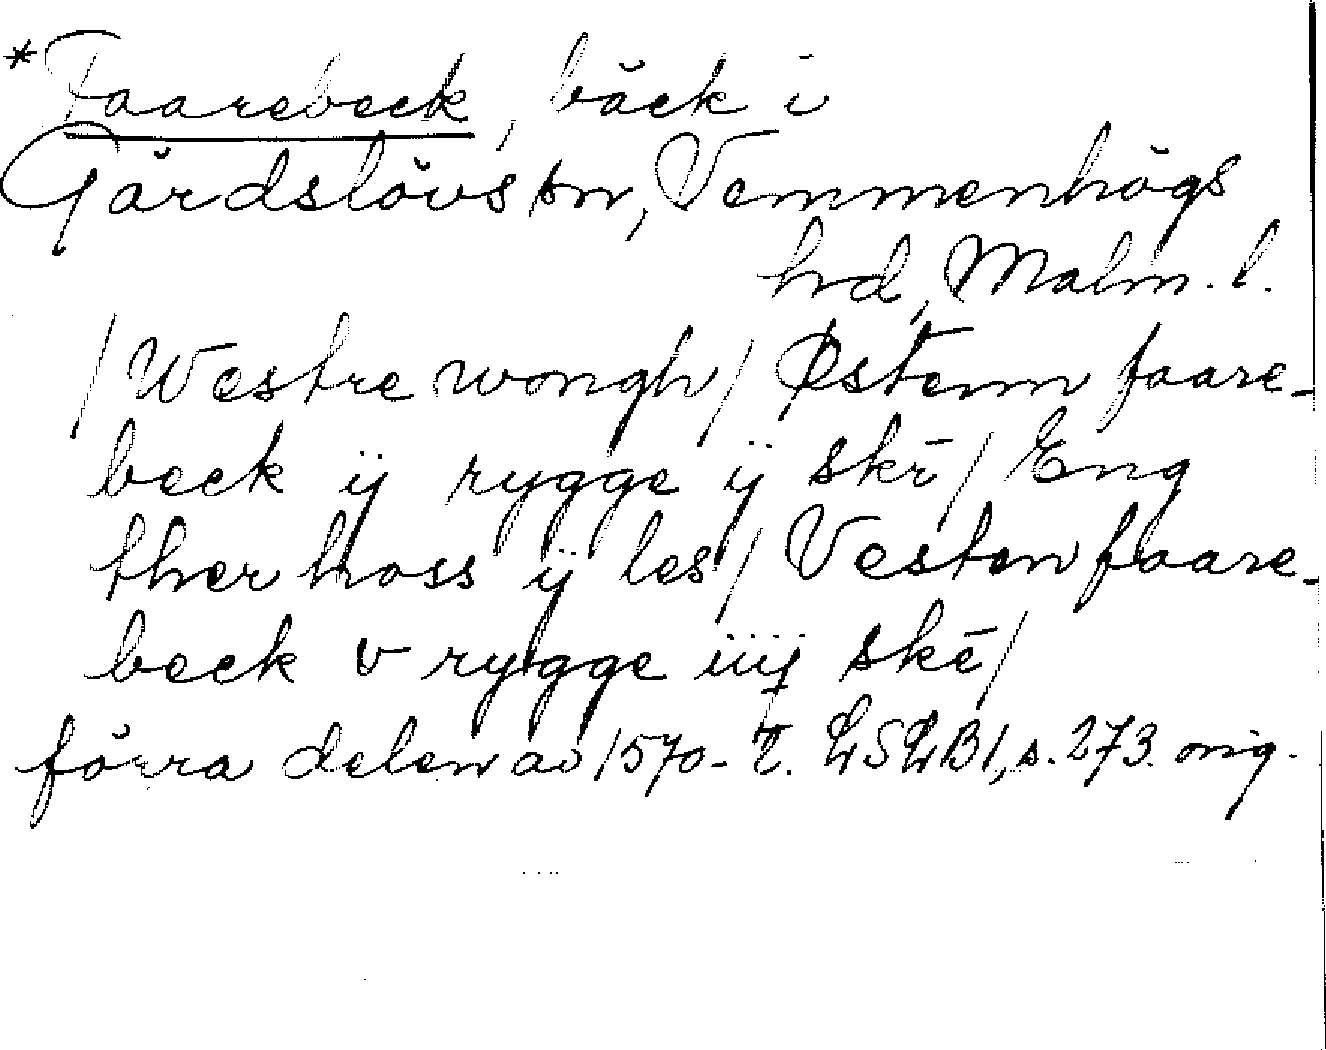 *Faarebeck, bäck i
Gärdslövs sn, Vemmenhögs
hd, Malm. l.
/Westre wongh/ Østenn faare-
beck ÿ rygge ÿ skē/ Eng
ther hoss ÿ les/ Vesten faare-
beck v rygge iiij skē/
förra delen av 1570-t. LSLB1, s. 273 orig.